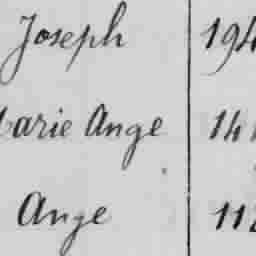 Joseph 194
Marie Ange 141
Ange 112